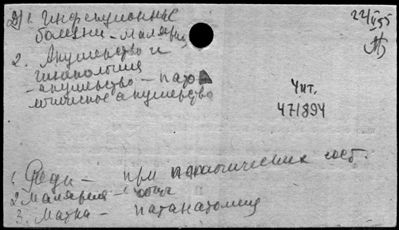 1. Инфекционные
болезни - малярия
2. Акушерство и
гинекология
- акушерство - пато
логическое акушерство
24/V 55
Чит.
471894
1. Роды - при патологических сост.
2. Малярия -
3. Матка - патанатомия